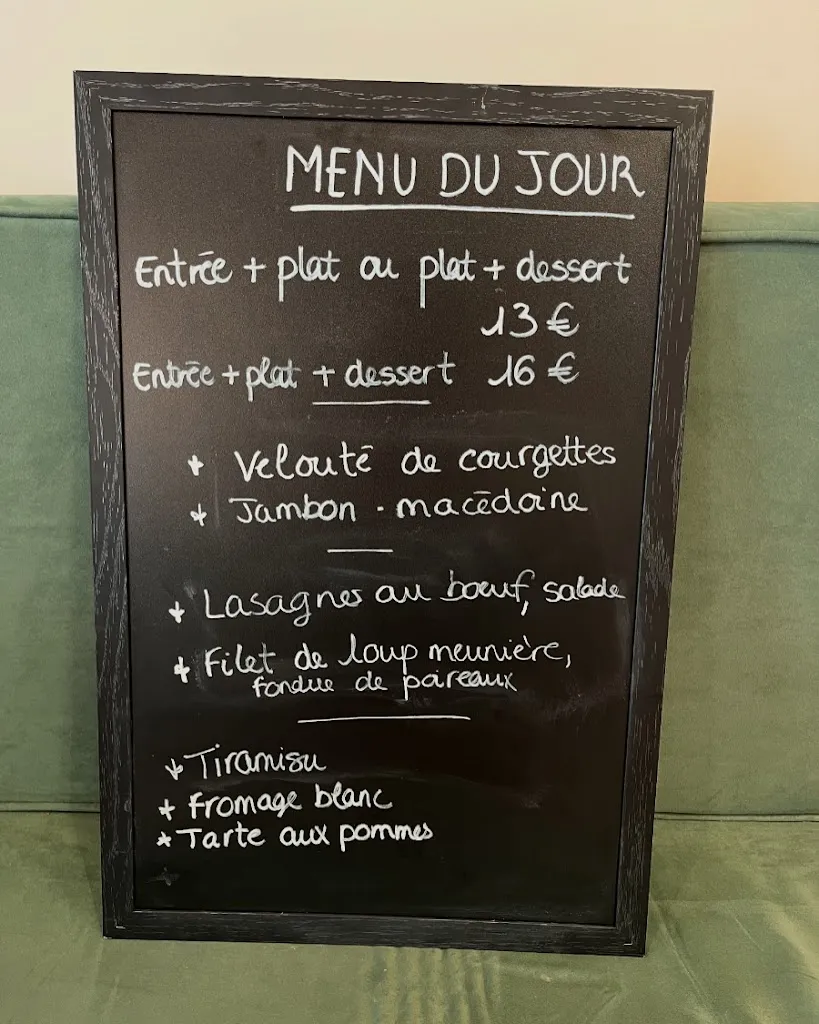 MENU DU JOUR
Entrée + plat ou plat + dessert
13 €
Entrée + plat + dessert 16 €
* Velouté de courgettes
* Jambon - macédoine
* Lasagnes au bœuf, salade
* Filet de loup meunière,
fondue de poireaux
* Tiramisu
* Fromage blanc
* Tarte aux pommes